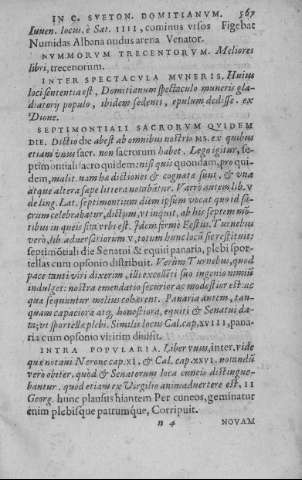 IN C. SVETON. DOMITIANVM. 567
Iuuen. locus. è Sat. IIII, cominus vrsos Figebat
Numidas Albona nudus arena Venator.
NVMMORVM TRECENTORVM. Meliores
libri, trecenorum.
INTER SPECTACVLA MVNERIS. Huius
loci sententia est, Domitianum spectaculo muneris gla-
diatorij populo, ibidem sedenti, epulum dedisse. ex
Dione.
SEPTIMONTIALI SACRORVM QVIDEM
DIE. Dictio die abest ab omnibus nostris MS. ex quibus
etiam vnus sacr. non sacrorum habet. Lego igitur, se-
ptimontiali sacro quidem: nisi quis quondam, pro qui-
dem, malit. nam hæ dictiones & cognatæ sunt, & vna
atque altera sæpe littera notabatur. Varro autem lib. v
de ling. Lat. septimontium diem ipsum vocat, quod sa-
crum celebrabatur, dictum, vt inquit, ab his septem mõ-
tibus in queis sita vrbs est. Idem firmè Festus. Turnebus
verò, lib. aduersariorum v, totum hunc locũ sic restituit:
septimõtiali die Senatui & equiti panaria, plebi spor-
tellas cum opsonio distribuit. Verùm Turnebus, quod
pace tanti viri dixerim, illi excelso suo ingenio nimiũ
indulget: nostra emendatio securior ac modestior est: ac
quæ sequuntur meliùs cohærent. Panaria autem, tan-
quam capaciora atq, honestiora, equiti & Senatui da-
ta; vt sportellæ plebi. Similis locus Cal. cap. XVIII, pana-
ria cum opsonio viritim diuisit.
INTRA POPVLARIA. Liber vnus, inter. vide
quæ notaui Nerone cap. XI. & Cal. cap. XXVI. notandũ
verò obiter, quòd & Senatorum loca cuneis distingue-
bantur. quod etiam ex Virgilio animaduertere est, II
Georg. hunc plausus hiantem Per cuneos, geminatur
enim plebisque patrumque, Corripuit.
n 4 NOVAM